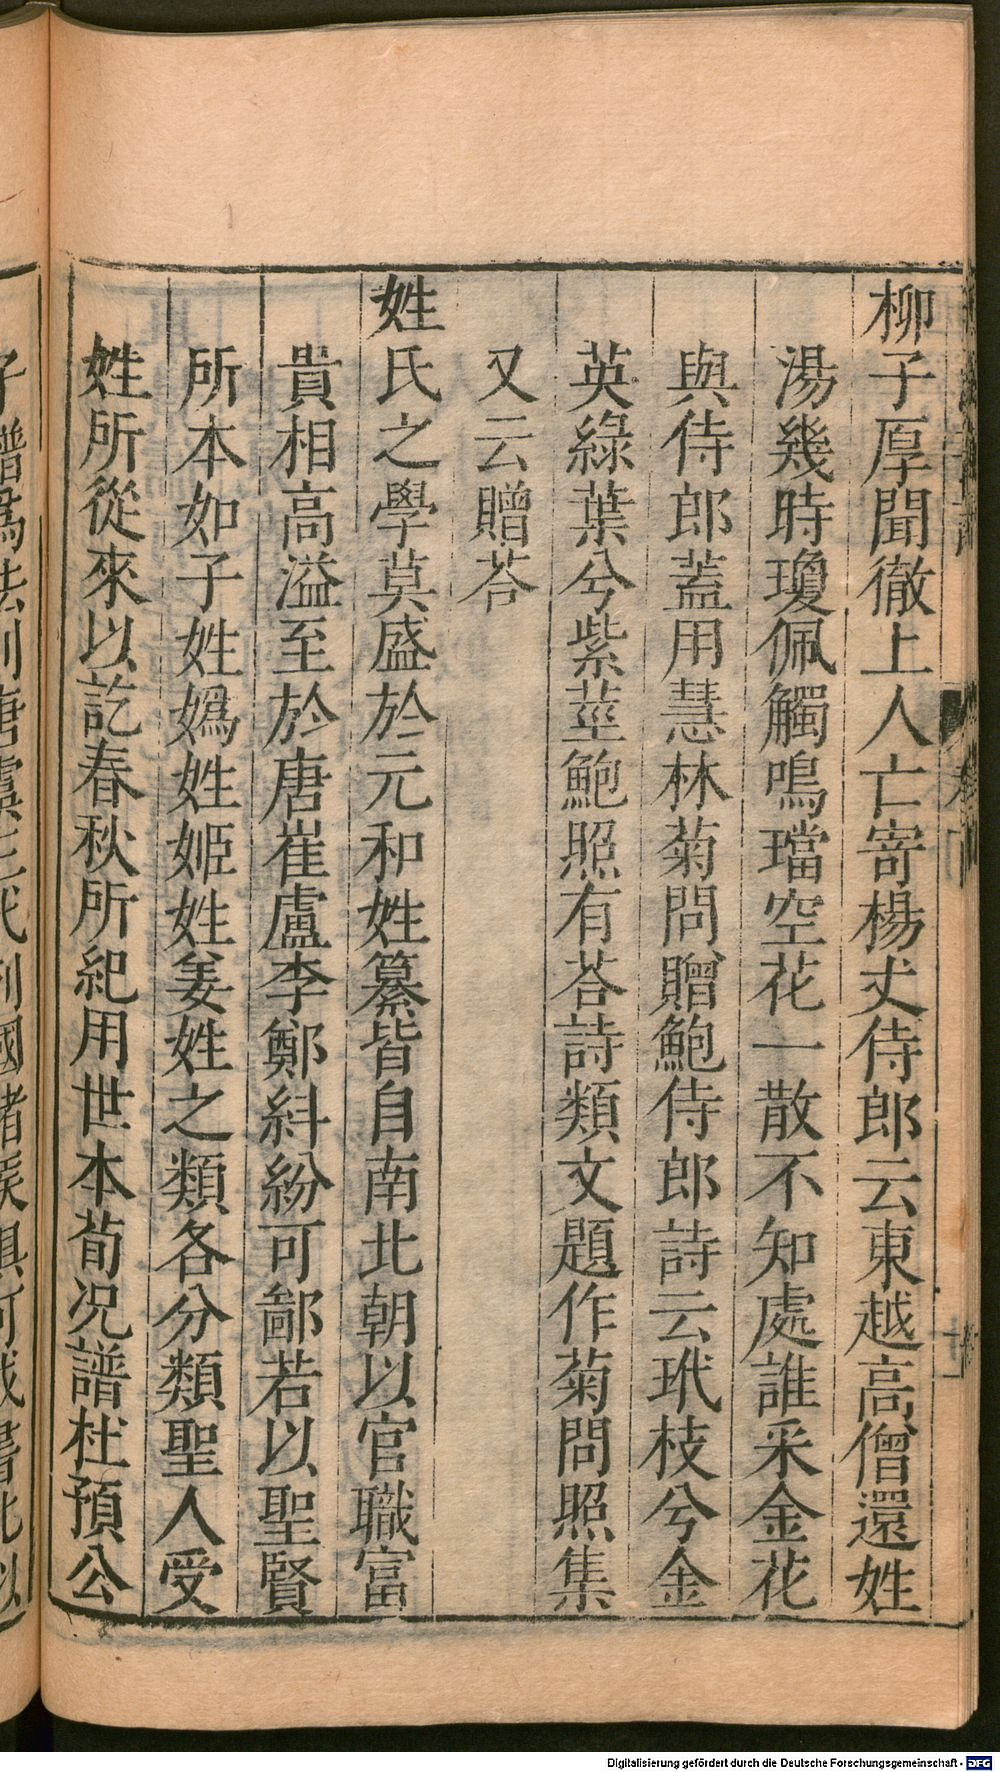 柳子厚聞徹上人亡寄楊丈侍郎云東越高僧還姓
湯幾時瓊佩觸鳴璫空花一散不知處誰采金花
與侍郎蓋用慧林菊問贈鮑侍郎詩云玳枝兮金
英綠葉兮紫莖鮑照有荅詩類文題作菊問照集
又云贈荅
姓氏之學莫盛於元和姓纂皆自南北朝以官職富
貴相高溢至於唐崔盧李鄭糾紛可鄙若以聖賢
所本如子姓嬀姓姬姓姜姓之類各分類聖人受
姓所從來以訖春秋所紀用世本荀况譜杜預公
子譜爲法則唐虞三代列國諸族俱可成書此以
Digitalisierung gefördert durch die Deutsche Forschungsgemeinschaft - DFG